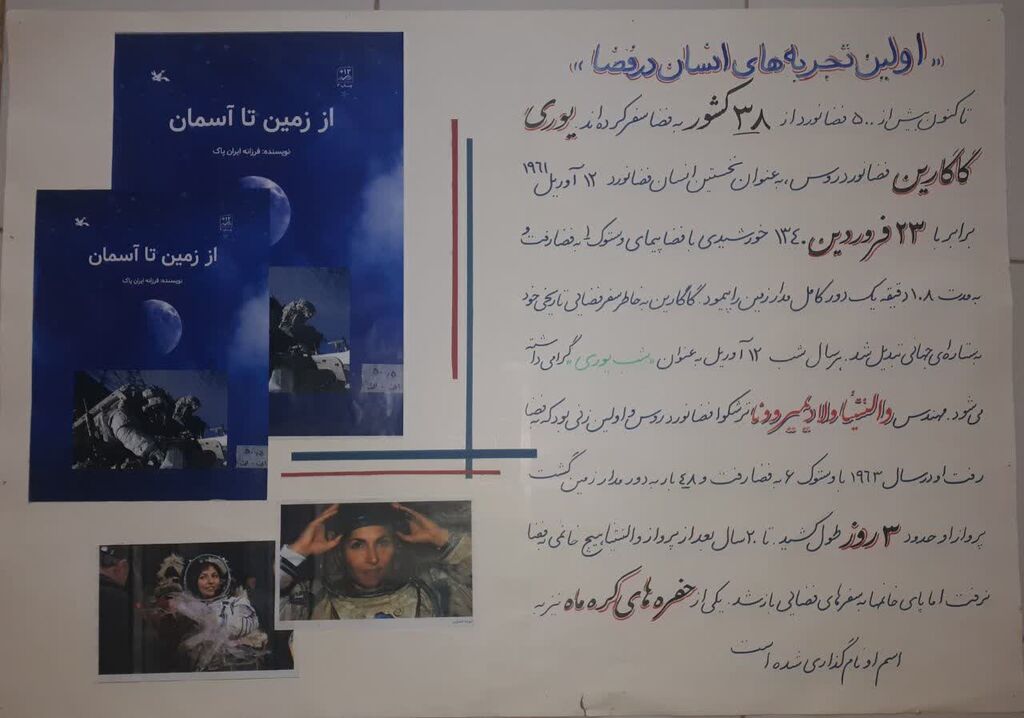 «اولین تجربه های انسان در فضا»
تاکنون بیش از ۵۰۰ فضانورد از ۳۸ کشور به فضا سفر کرده اند. یوری
گاگارین فضانورد روس، به عنوان نخستین انسان فضانورد ۱۲ آوریل ۱۹۶۱
برابر با ۲۳ فروردین ۱۳٤۰ خورشیدی با فضاپیمای وستوک ۱ به فضا رفت و
به مدت ۱۰۸ دقیقه یک دور کامل مدار زمین را پیمود. گاگارین به خاطر سفر فضایی تاریخی خود
به ستاره ای جهانی تبدیل شد. هر سال شب ۱۲ آوریل به عنوان «شب یوری» گرامی داشته
می شود. مهندس والنتینا ولادیمیروونا ترشکوا فضانورد روس و اولین زنی بود که به فضا
رفت او در سال ۱۹٦۳ با وستوک ۶ به فضا رفت و ٤۸ بار به دور مدار زمین گشت
پرواز او حدود ۳ روز طول کشید. تا ۲۰ سال بعد از پرواز والنتینا هیچ خانمی به فضا
نرفت اما پای خانمها به سفرهای فضایی باز شد. یکی از حفره های کره ماه نیز به
اسم او نام گذاری شده است
از زمین تا آسمان
نویسنده: فرزانه ایران پاک
+۱۲
از زمین تا آسمان
نویسنده: فرزانه ایران پاک
+۱۲